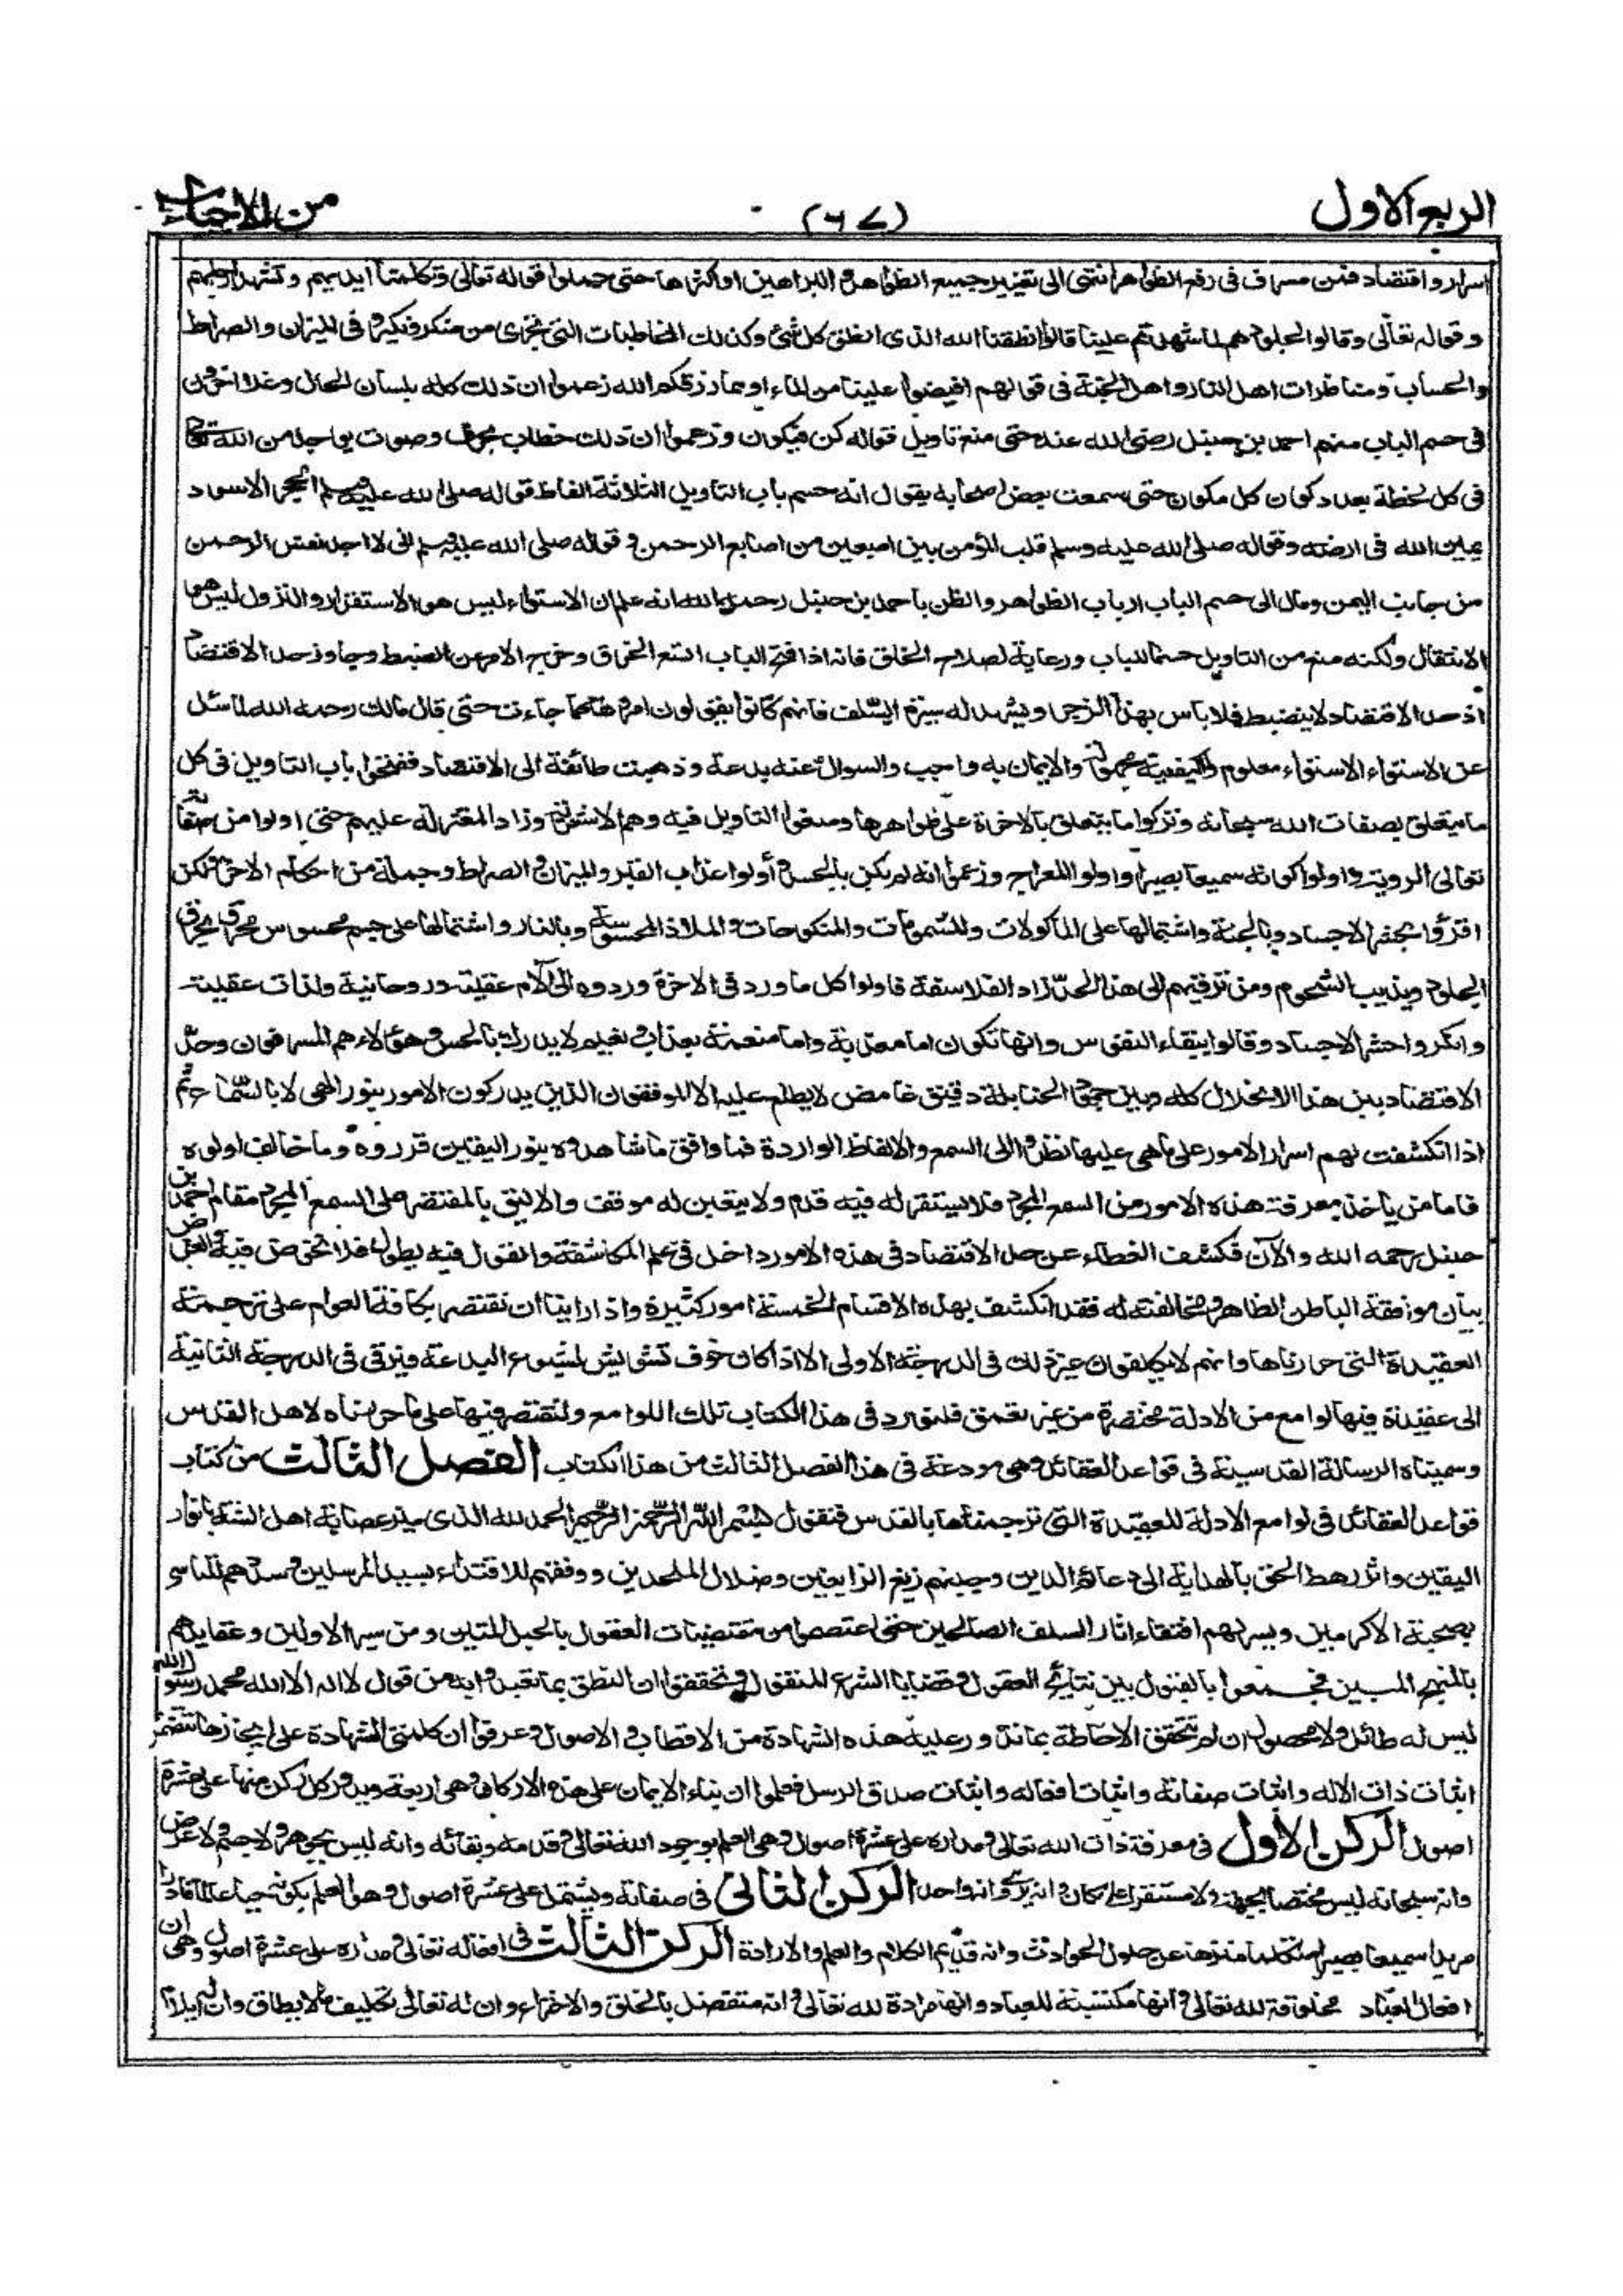 الربع الاول
(٦٧)
من الاحياء
اسراف واقتصاد فمن مسرف فى رفع الظواهر انتهى الى تغيير جميع الظواهر والبراهين او اكثرها حتى حملوا قوله تعالى وتكلمنا ايديهم وتشهد ارجلهم
وقوله تعالى وقالوا لجلودهم لم شهدتم علينا قالوا انطقنا الله الذى انطق كل شئ وكذلك المخاطبات التى تجرى من منكر ونكير وفى الميزان والصراط
والحساب ومناظرات اهل النار واهل الجنة فى قولهم افيضوا علينا من الماء او مما رزقكم الله زعموا ان ذلك كله بلسان الحال وغلا اخرون
فى حسم الباب منهم احمد بن حنبل رضى الله عنه حتى منع تاويل قوله كن فيكون وزعموا ان ذلك خطاب بحرف وصوت يوجد من الله تعالى
فى كل لحظة بعدد كون كل مكون حتى سمعت بعض اصحابه يقول انه حسم باب التاويل الا لثلاثة الفاظ قوله صلى الله عليه وسلم الحجر الاسود
يمين الله فى ارضه وقوله صلى الله عليه وسلم قلب المؤمن بين اصبعين من اصابع الرحمن وقوله صلى الله عليه وسلم انى لاجد نفس الرحمن
من جانب اليمن ومال الى حسم الباب ارباب الظواهر والظن باحمد بن حنبل رحمه الله انه علم ان الاستواء ليس هو الاستقرار والنزول ليس هو
الانتقال ولكنه منع من التاويل حسما للباب ورعاية لصلاح الخلق فانه اذا فتح الباب اتسع الخرق وخرج الامر عن الضبط وجاوز حد الاقتصاد
اذ حد الاقتصاد لا ينضبط فلا باس بهذا الزجر ويشهد له سيرة السلف فانهم كانوا يقولون امروها كما جاءت حتى قال مالك رحمه الله لما سئل
عن الاستواء الاستواء معلوم والكيفية مجهولة والايمان به واجب والسوال عنه بدعة وذهبت طائفة الى الاقتصاد ففتحوا باب التاويل فى كل
ما يتعلق بصفات الله سبحانه وتركوا ما يتعلق بالاخرة على ظواهرها ومنعوا التاويل فيه وهم الاشعرية وزاد المعتزلة عليهم حتى اولوا من صفاته
تعالى الروية واولوا كونه سميعا بصيرا واولوا المعراج وزعموا انه لم يكن بالجسد واولوا عذاب القبر والميزان والصراط وجملة من احكام الاخرة ولكن
اقروا بحشر الاجساد وبالجنة واشتمالها على الماكولات والمشمومات والمنكوحات والملاذ المحسوسة وبالنار واشتمالها على جسم محسوس محرق يحرق
الجلود ويذيب الشحوم ومن ترقيهم الى هذا الحد زاد الفلاسفة فاولوا كل ما ورد فى الاخرة وردوه الى آلام عقلية وروحانية ولذات عقلية
وانكروا حشر الاجساد وقالوا ببقاء النفوس وانها تكون اما معذبة واما منعمة بعذاب ونعيم لا يدرك بالحس وهؤلاء هم المسرفون وحد
الاقتصاد بين هذا الانحلال كله وبين جمود الحنابلة دقيق غامض لا يطلع عليه الا الموفقون الذين يدركون الامور بنور الهى لا بالسماع ثم
اذا انكشفت لهم اسرار الامور على ما هى عليها نظروا الى السمع والالفاظ الواردة فما وافق ما شاهدوه بنور اليقين قرروه وما خالف اولوه
فاما من ياخذ معرفة هذه الامور من السمع المجرد فلا يستقر له فيه قدم ولا يتعين له موقف والاليق بالمقتصر على السمع المجرد مقام احمد بن
حنبل رحمه الله والآن فكشف الغطاء عن حد الاقتصاد فى هذه الامور داخل فى علم المكاشفة والقول فيه يطول فلا نخوض فيه والغرض
بيان موافقة الباطن الظاهر ومخالفته له فقد انكشف بهذه الاقسام الخمسة امور كثيرة واذا راينا ان نقتصر بكافة العوام على ترجمة
العقيدة التى حررناها وانهم لا يكلفون غير ذلك فى الدرجة الاولى الا اذا كان خوف تشويش لشيوع البدعة فيرقى فى الدرجة الثانية
الى عقيدة فيها لوامع من الادلة مختصرة من غير تعمق فلنورد فى هذا الكتاب تلك اللوامع ولنقتصر فيها على ما حررناه لاهل القدس
وسميناه الرسالة القدسية فى قواعد العقائد وهى مودعة فى هذا الفصل الثالث من هذا الكتاب الفصل الثالث من كتاب
قواعد العقائد فى لوامع الادلة للعقيدة التى ترجمناها بالقدس فنقول بسم الله الرحمن الرحيم الحمد لله الذى ميز عصابة اهل السنة بانوار
اليقين واثر رهط الحق بالهداية الى دعائم الدين وجنبهم زيغ الزايغين وضلال الملحدين ووفقهم للاقتداء بسيد المرسلين وسددهم للتاسى
بصحبة الاكرمين ويسر لهم اقتفاء اثار السلف الصالحين حتى اعتصموا من مقتضيات العقول بالحبل المتين ومن سير الاولين وعقايدهم
بالمنهج المبين فجمعوا بالقبول بين نتايج العقول وقضايا الشرع المنقول وتحققوا ان النطق بما تعبدوا به من قول لا اله الا الله محمد رسول الله
ليس له طائل ولا محصول ان لم تتحقق الاحاطة بما تدور عليه هذه الشهادة من الاقطاب والاصول وعرفوا ان كلمتى الشهادة على ايجازها تتضمن
اثبات ذات الاله واثبات صفاته واثبات افعاله واثبات صدق الرسل فعلموا ان بناء الايمان على هذه الاركان وهى اربعة ويدور كل ركن منها على عشرة
اصول الركن الاول فى معرفة ذات الله تعالى ومداره على عشرة اصول وهى العلم بوجود الله تعالى وقدمه وبقائه وانه ليس بجوهر ولا جسم ولا عرض
وانه سبحانه ليس مختصا بجهة ولا مستقرا على مكان وانه يرى وانه واحد الركن الثانى فى صفاته ويشتمل على عشرة اصول وهو العلم بكونه حيا عالما قادرا
مريدا سميعا بصيرا متكلما منزها عن حلول الحوادث وانه قديم الكلام والعلم والارادة الركن الثالث فى افعاله تعالى ومداره على عشرة اصول وهى ان
افعال العباد مخلوقة لله تعالى وانها مكتسبة للعباد وانها مرادة لله تعالى وانه متفضل بالخلق والاختراع وان له تعالى تكليف ما لا يطاق وان له ايلام